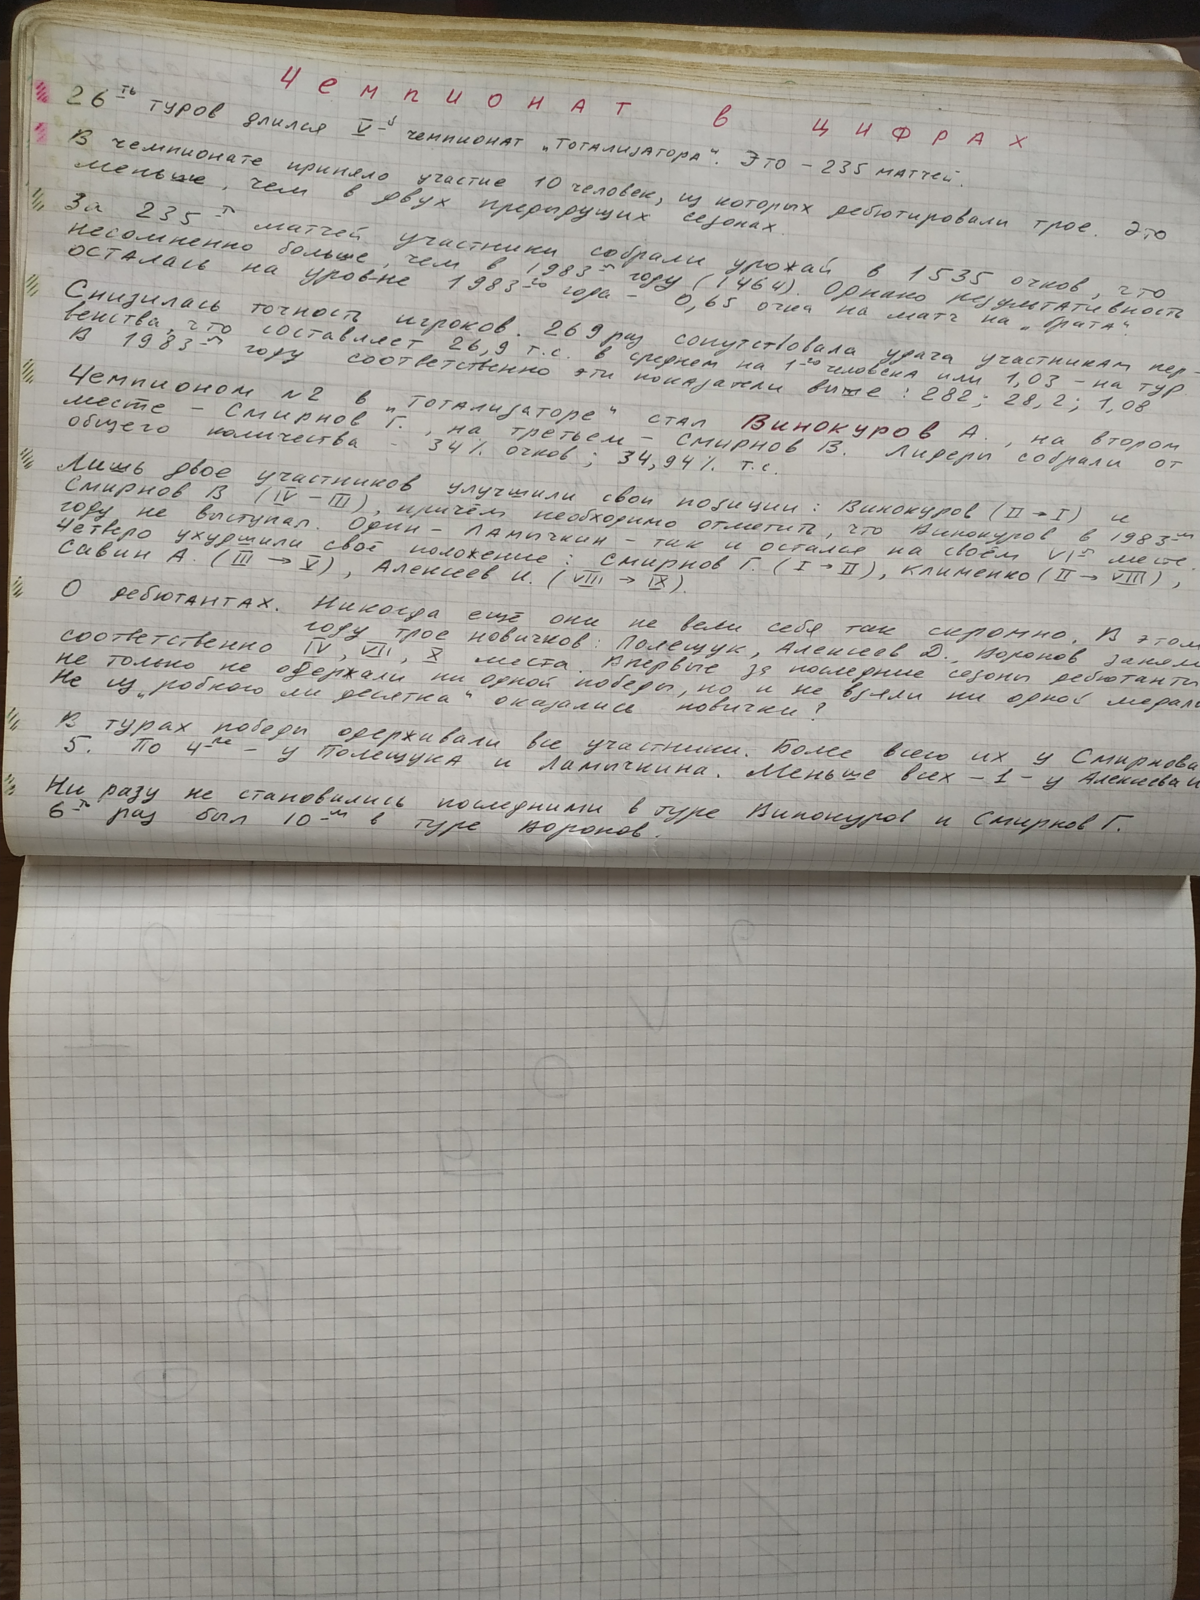 Чемпионат в цифрах
26ть туров длился V-й чемпионат „Тотализатора". Это – 235 матчей.
В чемпионате приняло участие 10 человек, из которых дебютировали трое. Это
меньше, чем в двух предыдущих сезонах.
За 235ть матчей участники собрали урожай в 1535 очков, что
несомненно больше, чем в 1983-м году (1464). Однако результативность
осталась на уровне 1983го года – 0,65 очка на матч на „брата"
Снизилась точность игроков. 269 раз сопутствовала удача участникам пер-
венства, что составляет 26,9 т.с. в среднем на 1го человека или 1,03 – на тур
В 1983-м году соответственно эти показатели выше: 282; 28,2; 1,08
Чемпионом №2 в „Тотализаторе" стал Винокуров А., на втором
месте – Смирнов Г., на третьем – Смирнов В. Лидеры собрали от
общего количества – 34% очков; 34,94% т.с.
Лишь двое участников улучшили свои позиции: Винокуров (II → I) и
Смирнов В (IV – III), причём необходимо отметить, что Винокуров в 1983-м
году не выступал. Один – Ламычкин – так и остался на своём VI-м месте.
Четверо ухудшили своё положение: Смирнов Г. (I → II), Клименко (II → VIII),
Савин А. (III → V), Алексеев И. (VIII → IX).
О дебютантах. Никогда ещё они не вели себя так скромно. В этом
году трое новичков: Полещук, Алексеев Д., Воронов заняли
соответственно IV, VII, X места. Впервые за последние сезоны дебютанты
не только не одержали ни одной победы, но и не взяли ни одной медали
Не из „робкого ли десятка" оказались новички?
В турах победы одерживали все участники. Более всего их у Смирнова
5. По 4-ре – у Полещука и Ламычкина. Меньше всех – 1 – у Алексеева И
Ни разу не становились последними в туре Винокуров и Смирнов Г.
6ть раз был 10-м в туре Воронов.